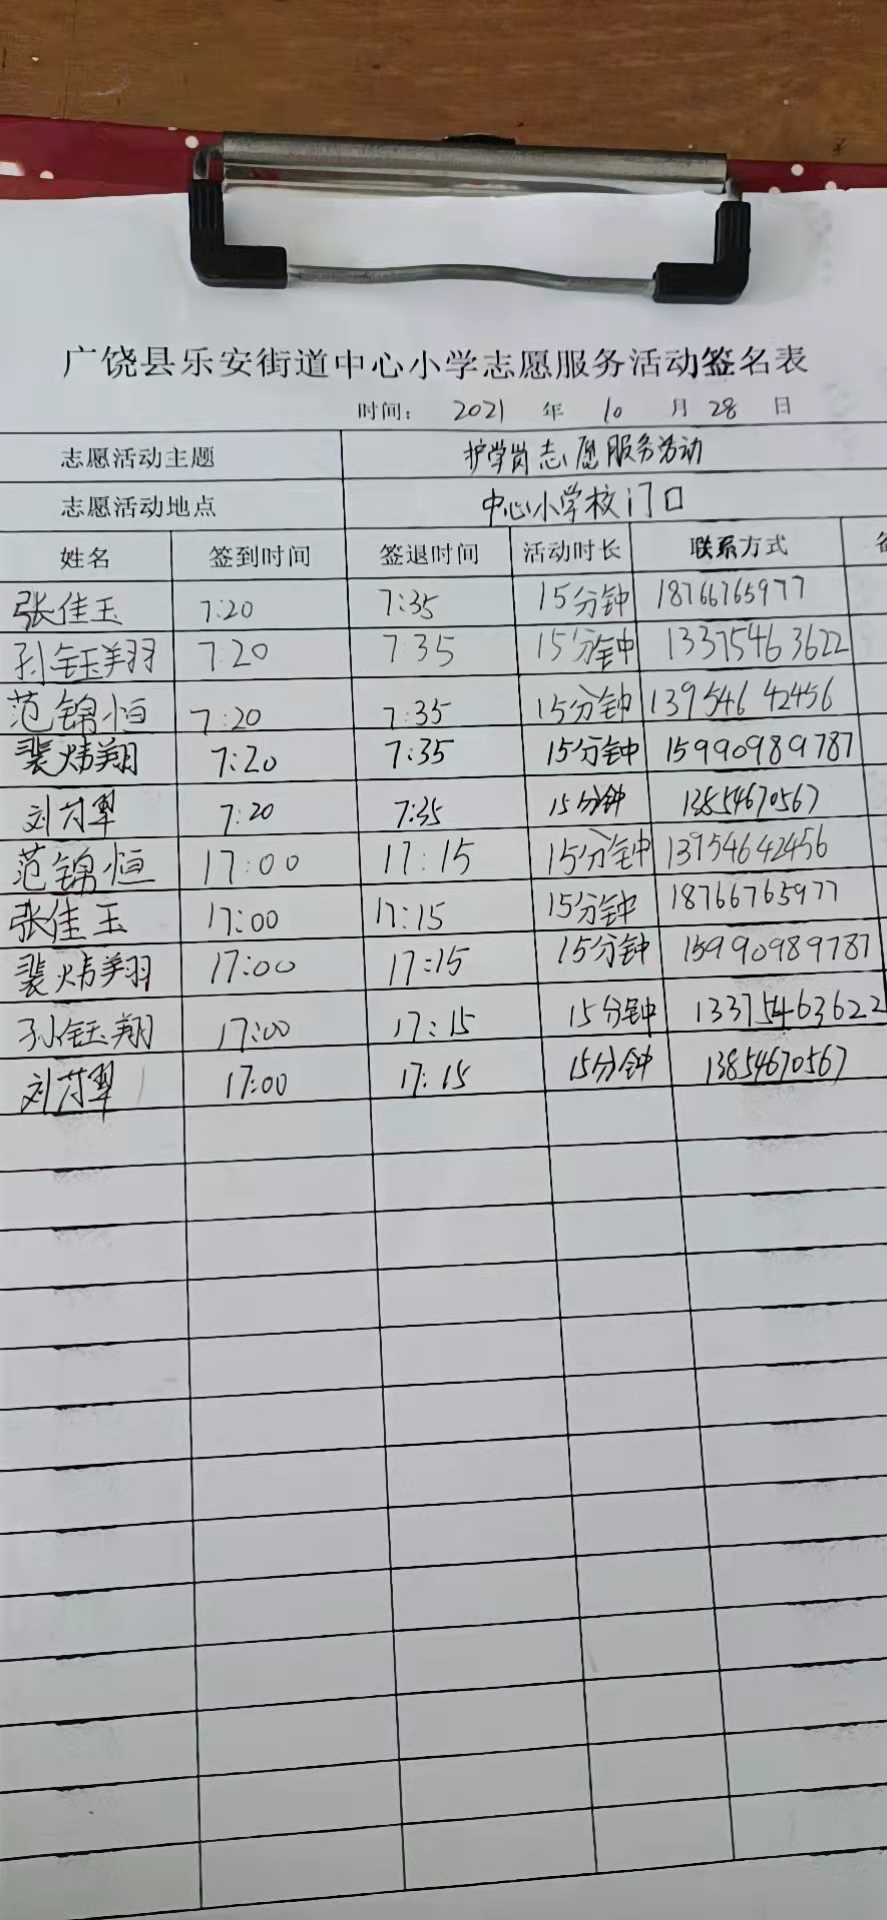 广饶县乐安街道中心小学志愿服务活动签名表
时间： 2021 年 10 月 28 日
志愿活动主题 护学岗志愿服务活动
志愿活动地点 中心小学校门口
姓名 签到时间 签退时间 活动时长 联系方式
张佳玉 7:20 7:35 15分钟 18766765977
孙钰翔 7:20 7 35 15分钟 13375463622
范锦恒 7:20 7:35 15分钟 13954642456
裴炜翔 7:20 7:35 15分钟 15990989787
刘 7:20 7:35 15分钟 13854670567
范锦恒 17:00 17:15 15分钟 13954642456
张佳玉 17:00 17:15 15分钟 18766765977
裴炜翔 17:00 17:15 15分钟 15990989787
孙钰翔 17:00 17:15 15分钟 13375463622
刘 17:00 17:15 15分钟 13854670567